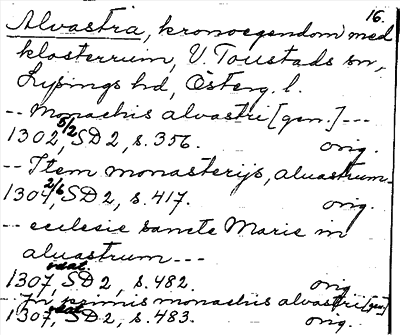 16.
Alvastra, kronoegendom med
klosterruin, V. Toustads sn,
Lysings hd, Österg. l.
-- Monachis alvastri [gen.] ---
1302 5/2, SD 2, s. 356. orig.
-- Item monasterijs, aluastrum-
1304 2/6, SD 2, s. 417. orig.
-- ecclesie sancte Marie in
aluastrum ---
1307, SD 2, s. 482. orig.
In primis monachis alvastri [gen]
1307, SD 2, s. 483. orig.